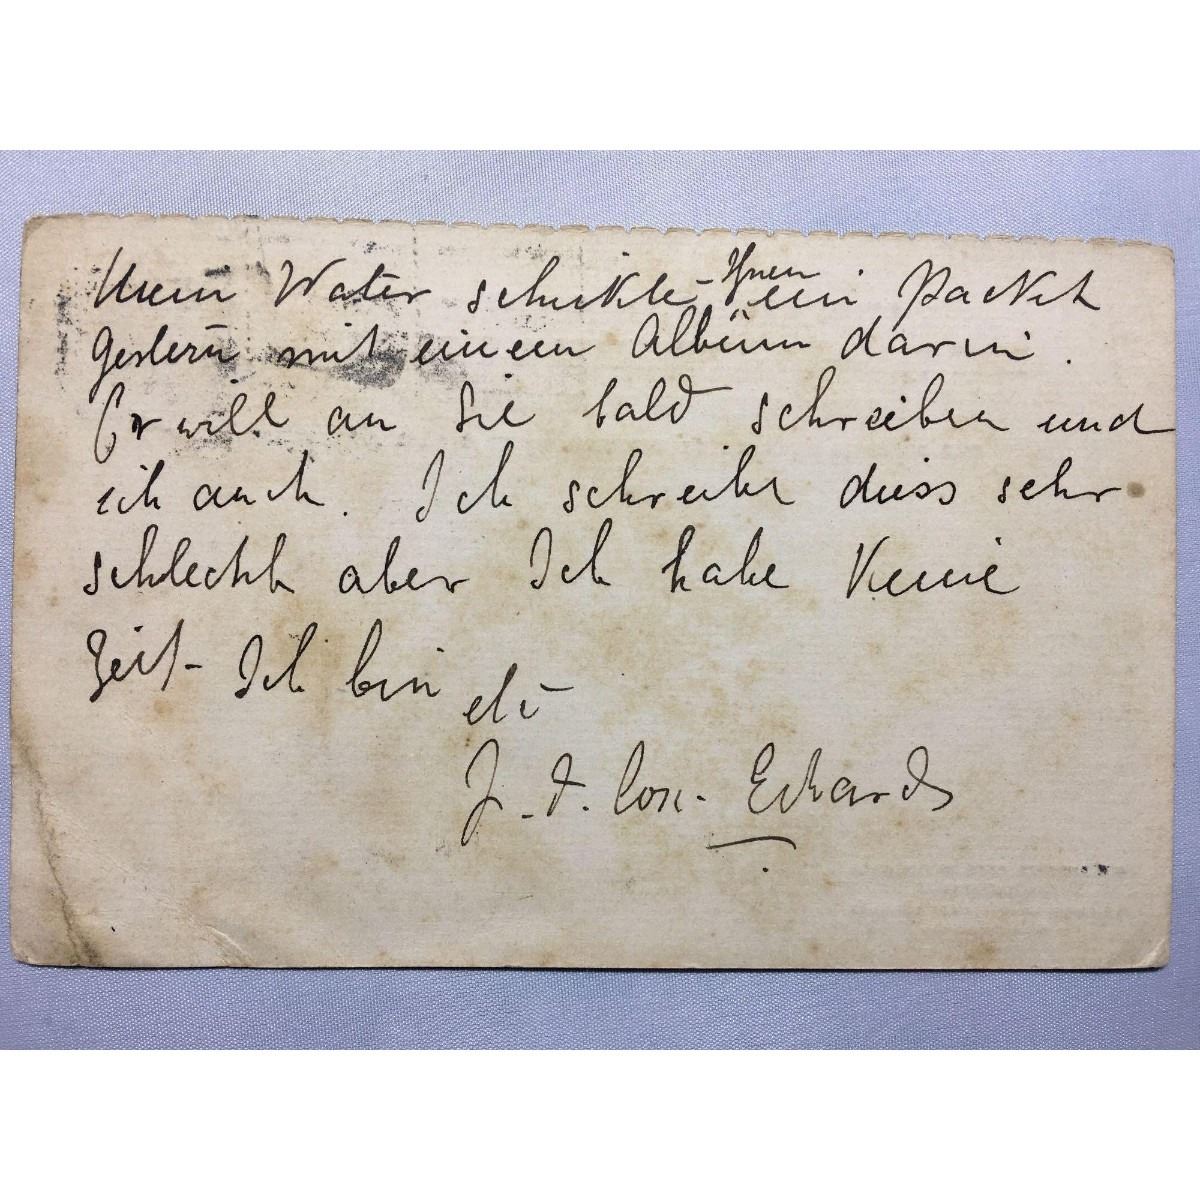 Mein Water schikte Ihnen ein Packet
gestern mit einem Albüm darin.
Er will an Sie bald schreiben und
ich auch. Ich schreibe diess sehr
schlecht aber Ich habe Keine
Zeit - Ich bin etc
J. d. Cox - Edwards